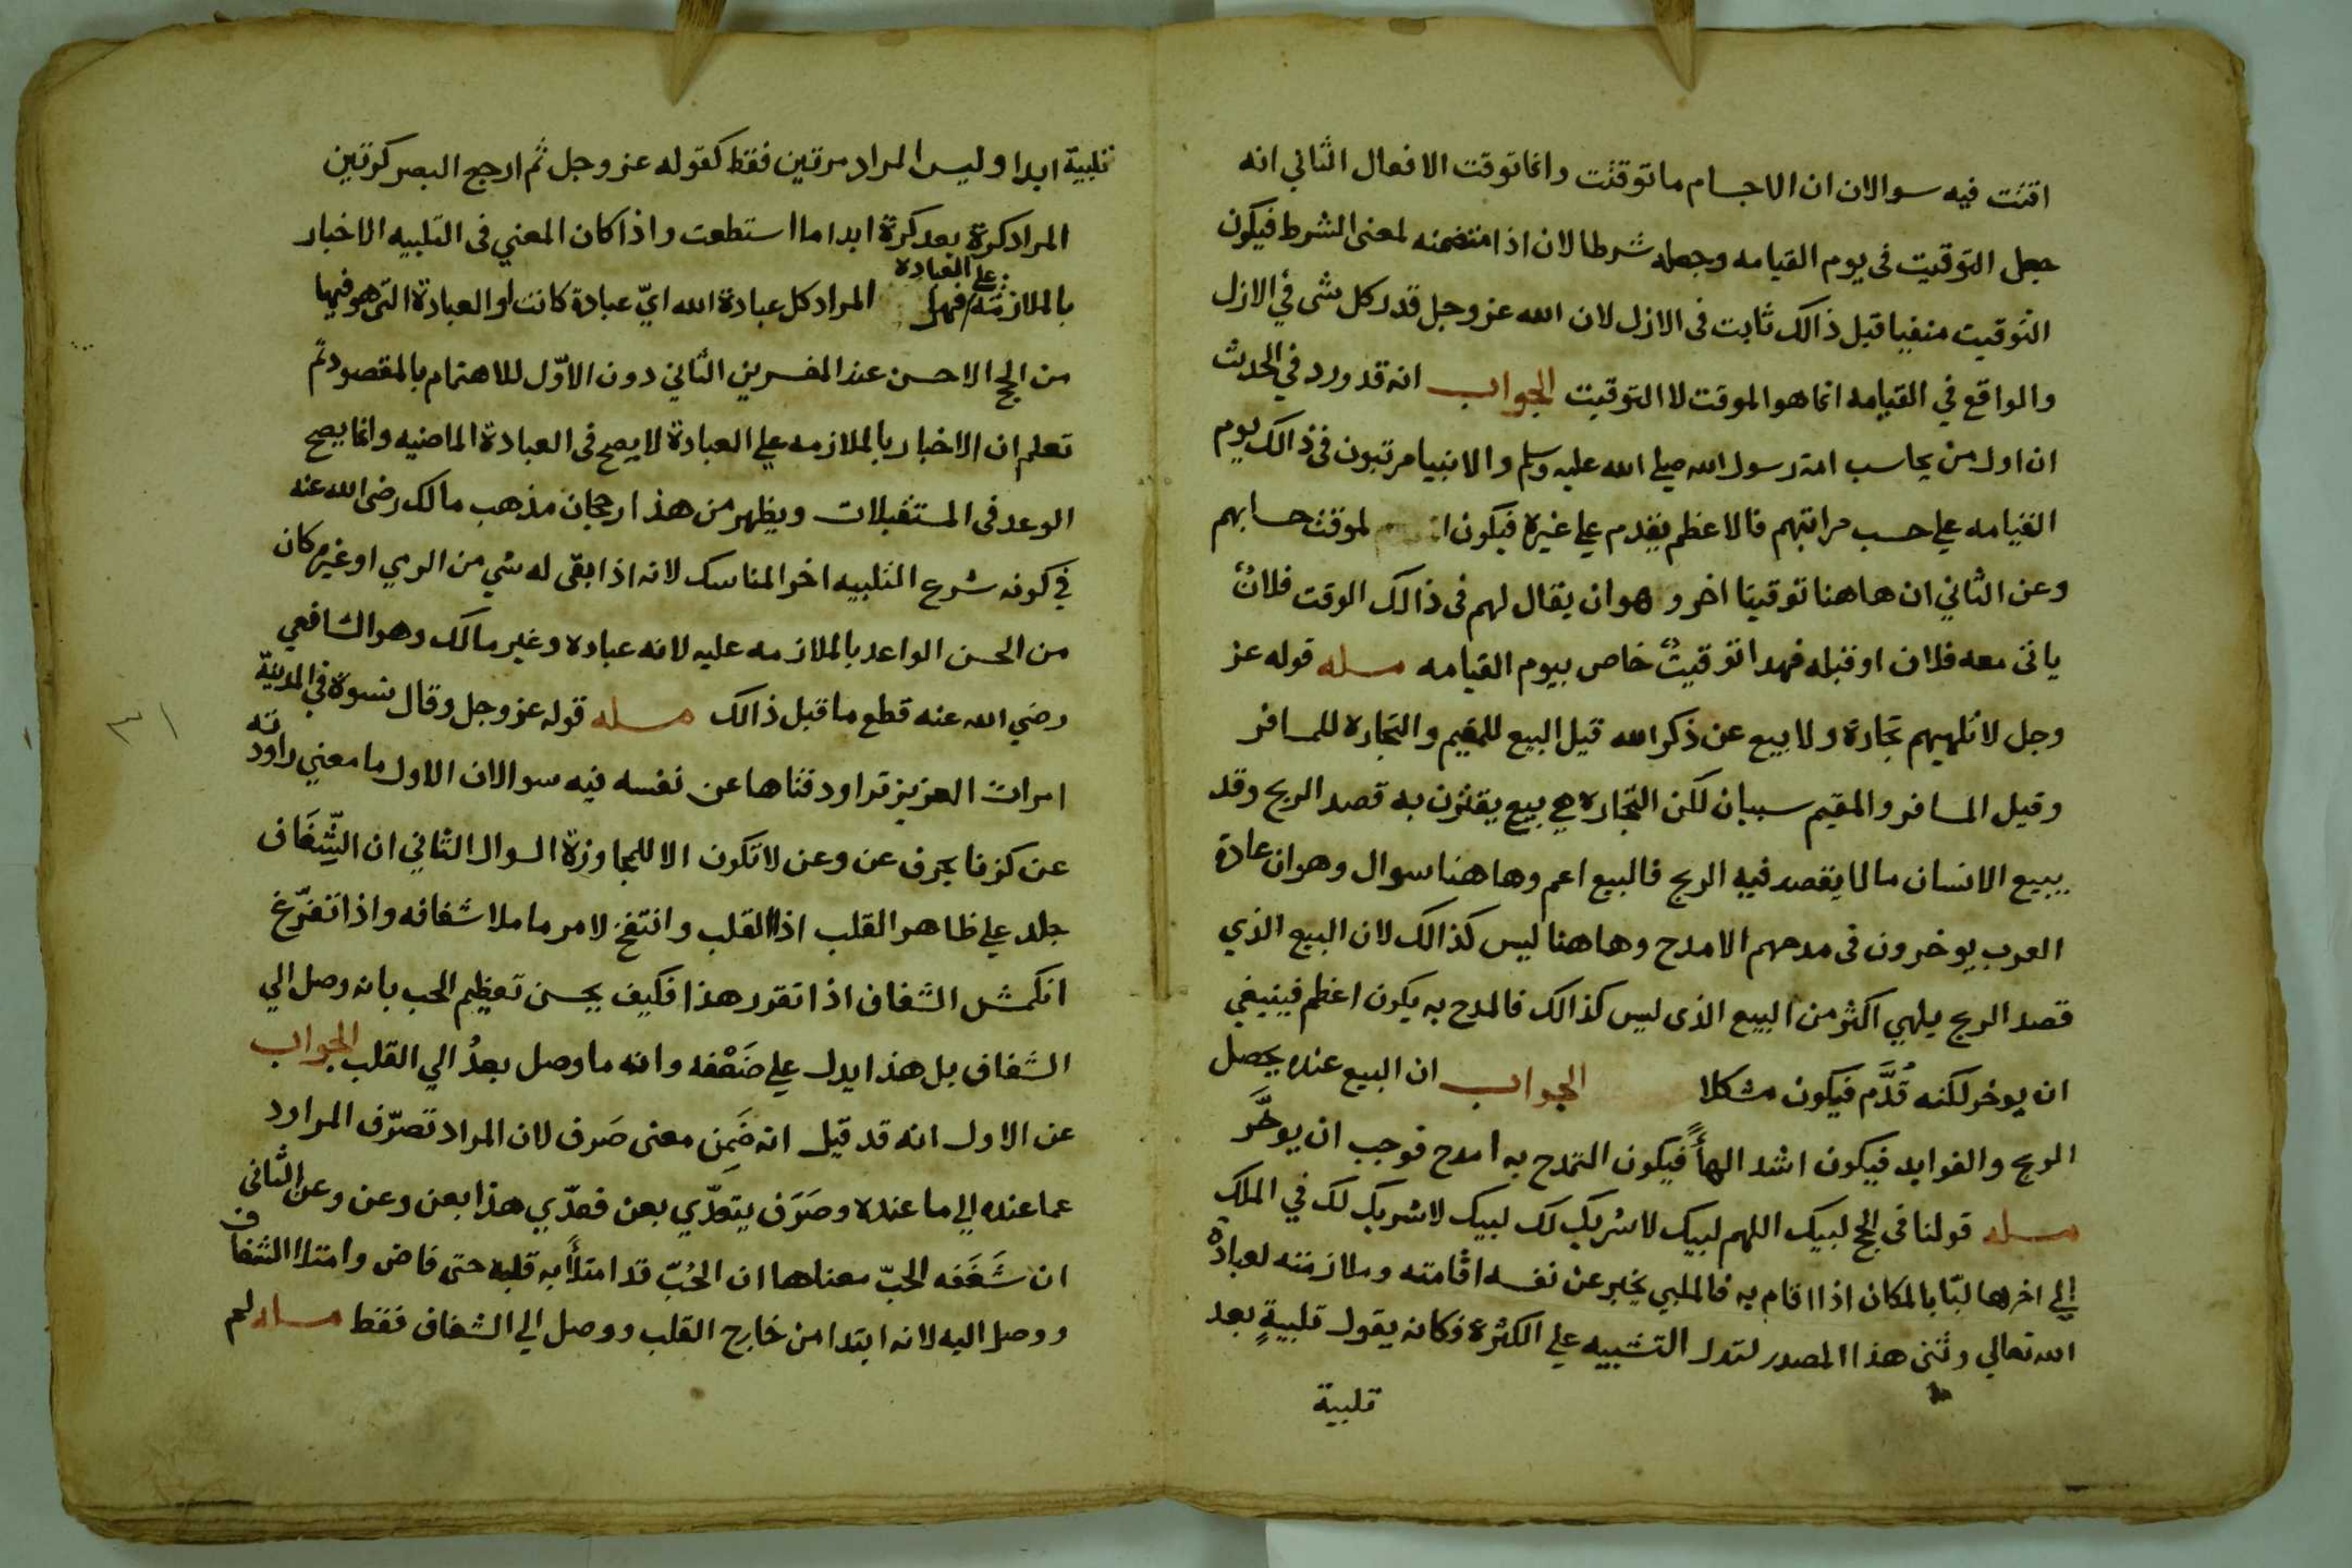 اقتت فيه سوالان ان الاجسام ما توقتت وانما توقت الافعال الثاني انه
جعل التوقيت في يوم القيامه وجعله شرطا لان اذا متضمنه لمعنى الشرط فيكون
التوقيت منفيا قبل ذالك ثابت في الازل لان الله عز وجل قدر كل شي في الازل
والواقع في القيامه انما هو الموقت لا التوقيت الجواب انه قد ورد في الحديث
ان اول من يحاسب امة رسول الله صلي الله عليه وسلم والانبيا مرتبون في ذالك يوم
القيامه علي حسب مراتبهم فالاعظم يقدم علي غيره فيكون لموقت حسابهم
وعن الثاني ان هاهنا توقيتا اخر وهو ان يقال لهم في ذالك الوقت فلانٌ
ياتى معه فلان او قبله فهدا توقيتٌ خاص بيوم القيامه مسله قوله عز
وجل لا تلهيهم تجارة ولا بيع عن ذكر الله قيل البيع للمقيم والتجاره للمسافر
وقيل المسافر والمقيم سببان لكن التجاره هي بيع يقترن به قصد الربح وقد
يبيع الانسان مالا يقصد فيه الربح فالبيع اعم وهاهنا سوال وهو ان عادة
العرب يوخرون في مدحهم الامدح وهاهنا ليس كذالك لان البيع الذي
قصد الربح يلهي اكثر من البيع الذى ليس كذالك فالمدح به يكون اعظم فينبغي
ان يوخر لكنه قُدَّم فيكون مشكلا الجواب ان البيع عنده يحصل
الربح والفوايد فيكون اشد الهأً فيكون التمدح به امدح فوجب ان يوخَّر
مسله قولنا في الحج لبيك اللهم لبيك لا شريك لك لبيك لا شريك لك في الملك
إلي اخرها لبّا بالمكان اذا اقام به فالملبي يخبر عن نفسه اقامته وملازمته لعبادة
الله تعالي وثنى هذا المصدر لتدل التثنيه علي الكثرة فكانه يقول تلبيةٍ بعد
تلبية
تلبية ابدا وليس المراد مرتين فقط كقوله عز وجل ثم ارجع البصر كرتين
المراد كرة بعد كرة ابدا ما استطعت واذا كان المعني في التلبيه الاخبار
بالملازمة علي العباده فهل المراد كل عبادة الله ايّ عبادة كانت او العبادة التى هو فيها
من الحج الاحسن عند المفسرين الثاني دون الاوّل للاهتمام بالمقصود ثم
تعلم ان الاخبار بالملازمه علي العبادة لا يصح في العبادة الماضيه وانما يصح
الوعد في المستقبلات ويظهر من هذا رجحان مذهب مالك رضى الله عنه
في كونه شرع التلبيه اخر المناسك لانه اذا ابقى له شي من الرمي او غيره كان
من الحسن الواعد بالملازمه عليه لانه عباده وغير مالك وهو الشافعي
رضي الله عنه قطع ما قبل ذالك مسله قوله عز وجل وقال نسوة في المدينة
امرات العزيز تراود فتاها عن نفسه فيه سوالان الاول ما معني راودته
عن كزفا بحرف عن وعن لا تكون الا للمجاوزة السوال الثاني ان الشِّغَاف
جلد علي ظاهر القلب اذا القلب وانتفخ لامر ما ملا شغافه واذا تفرّغ
انكمش الشغاف اذا تقور هذا فكيف يحسن تعظيم الحب بانه وصل الي
الشغاف بل هذا يدل علي ضَعْفه وانه ما وصل بعدُ الي القلب الجواب
عن الاول انه قد قيل انه ضَمِن معنى صَرف لان المراد تصرّف المراود
عما عنده إلي ما عنده وصَرَف يتعدّي بعن فعدّي هذا بعن وعن وعن الثانى
ان شَغَفه الحبّ معناها ان الحُبّ قد امتلأ به قلبه حتى فاض وامتلا الشغاف
ووصل اليه لانه ابتدا من خارج القلب ووصل إلي الشغاف فقط مسله لم
٣١